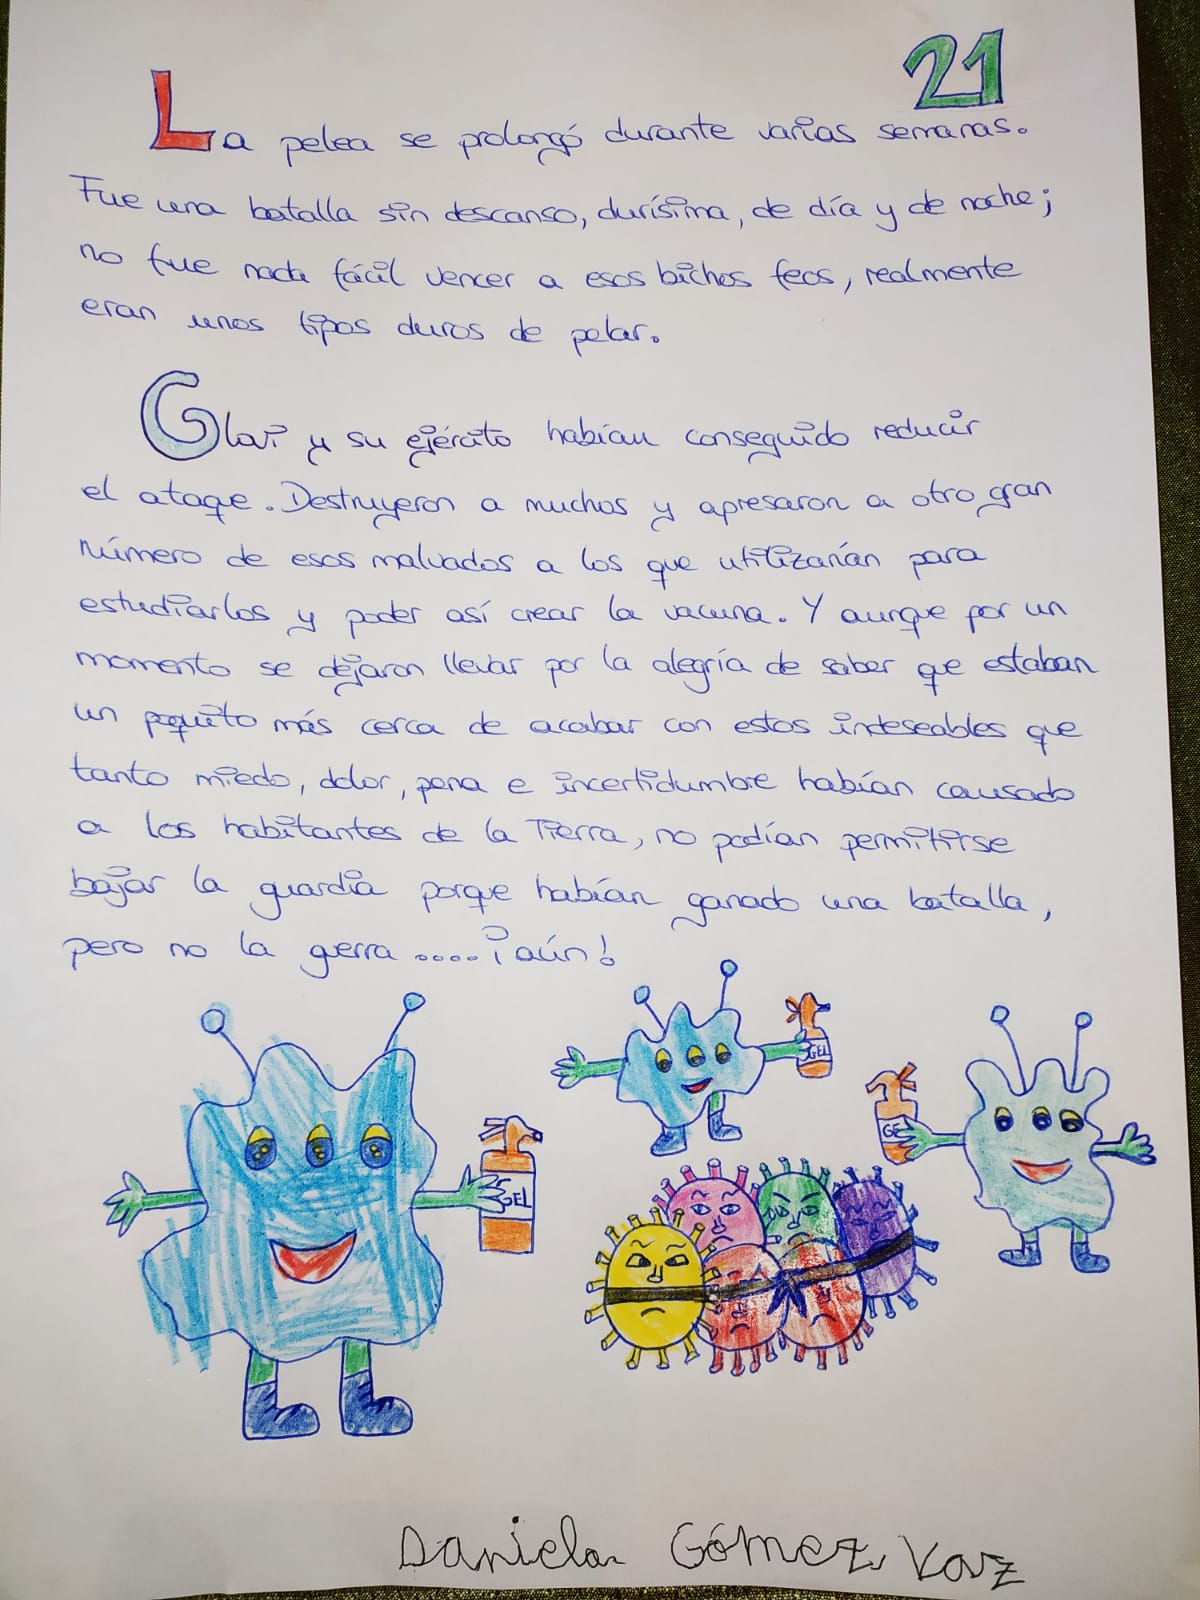 21
La pelea se prolongó durante varias semanas.
Fue una batalla sin descanso, durísima, de día y de noche;
no fue nada fácil vencer a esos bichos feos, realmente
eran unos tipos duros de pelar.
Glai y su ejército habían conseguido reducir
el ataque. Destruyeron a muchos y apresaron a otro gran
número de esos malvados a los que utilizarían para
estudiarlos y poder así crear la vacuna. Y aunque por un
momento se dejaron llevar por la alegría de saber que estaban
un poquito más cerca de acabar con estos indeseables que
tanto miedo, dolor, pena e incertidumbre habían causado
a los habitantes de la Tierra, no podían permitirse
bajar la guardia porque habían ganado una batalla,
pero no la guerra .... ¡aún!
GEL
GE
GEL
Daniela Gómez Vaz